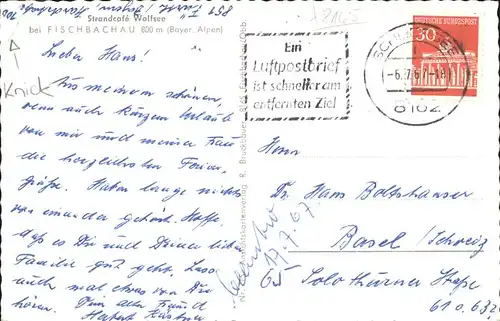 Strandcafé Wolfsee
bei FISCHBACHAU 800 m (Bayer. Alpen)
Knick
Lieber Hans!
Aus meinem schönen,
wenn auch kurzen Urlaub
von mir und meiner Frau
die herzlichsten Ferien-
grüße. Haben lange nichts
von einander gehört. Hoffe,
daß es Dir und Deiner lieben
Familie gut geht. Lass
auch mal etwas von Dir
hören. Dein alter Freund
Ein
Luftpostbrief
ist schneller am
entfernten Ziel
-6.7.6
8162
DEUTSCHE BUNDESPOST
30
Herrn
Dr. Hans Boltshauser
Basel / Schweiz
65 Solothurner Straße
17.7.67